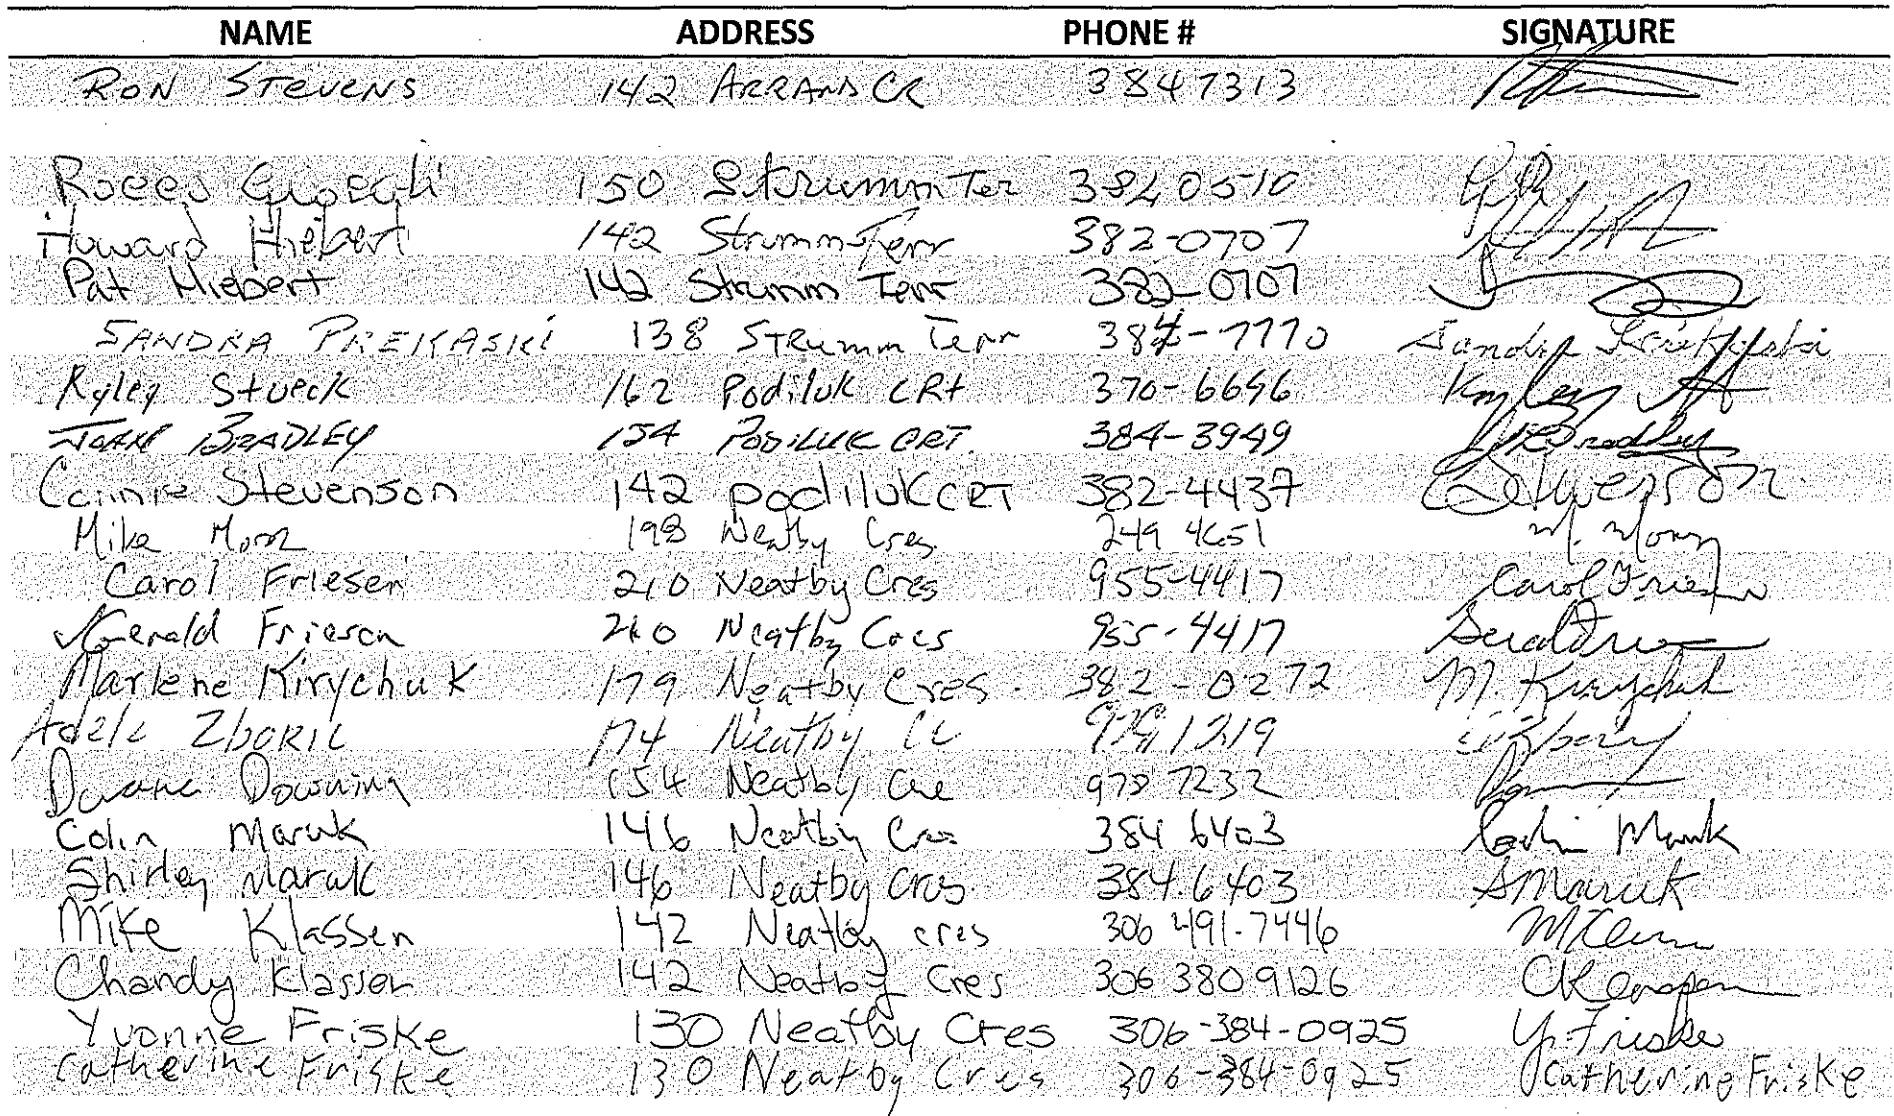 NAME ADDRESS PHONE # SIGNATURE
RON STEVENS 142 ARRAND CR 3847313
150 Strumm Ter 3840510
Howard Hiebert 142 Strumm Terr 382-0707
Pat Hiebert 142 Strumm Terr 382-0707
SANDRA PREIKASKI 138 STRumm Terr 384-7770 Sandra
Kyley Stueck 162 Podiluk CRt 370-6646 Kyley
BRADLEY 154 PODILUK CRT. 384-3949 Bradley
Connie Stevenson 142 podiluk CRT 382-4437
Mike 198 Neatby Cres 249 4651 M.
Carol Friesen 210 Neatby Cres 955-4417 Carol Friesen
Gerald Friesen 210 Neatby Cres 955-4417
Marlene Kirychuk 179 Neatby Cres. 382-0272 M. Kirychuk
Adele ZbORIL 174 Neatby 1219
Duane Downing 154 Neatby Cre 978 7232
Colin Maruk 146 Neatby Cres 384 6403 Colin Maruk
Shirley Maruk 146 Neatby Cres 384.6403 S Maruk
Mike Klassen 142 Neatby cres 306 491-7446
Chandy Klassen 142 Neatby Cres 306 380 9126
Yvonne Friske 130 Neatby Cres 306-384-0925 Y. Friske
Catherine Friske 130 Neatby Cres 306-384-0925 Catherine Friske